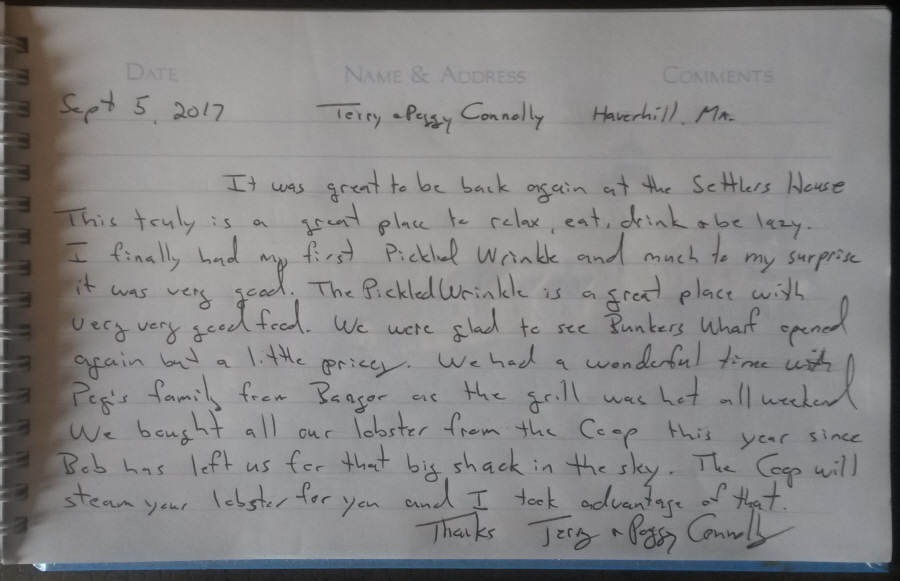 DATE NAME & ADDRESS COMMENTS
Sept 5, 2017 Terry & Peggy Connolly Haverhill, MA.
It was great to be back again at the Settlers House
This truly is a great place to relax, eat, drink & be lazy.
I finally had my first Pickled Wrinkle and much to my surprise
it was very good. The Pickled Wrinkle is a great place with
very very good food. We were glad to see Bunkers Wharf opened
again but a little pricey. We had a wonderful time with
Peg's family from Bangor as the grill was hot all weekend
We bought all our lobster from the Coop this year since
Bob has left us for that big shack in the sky. The Coop will
steam your lobster for you and I took advantage of that.
Thanks Terry & Peggy Connolly